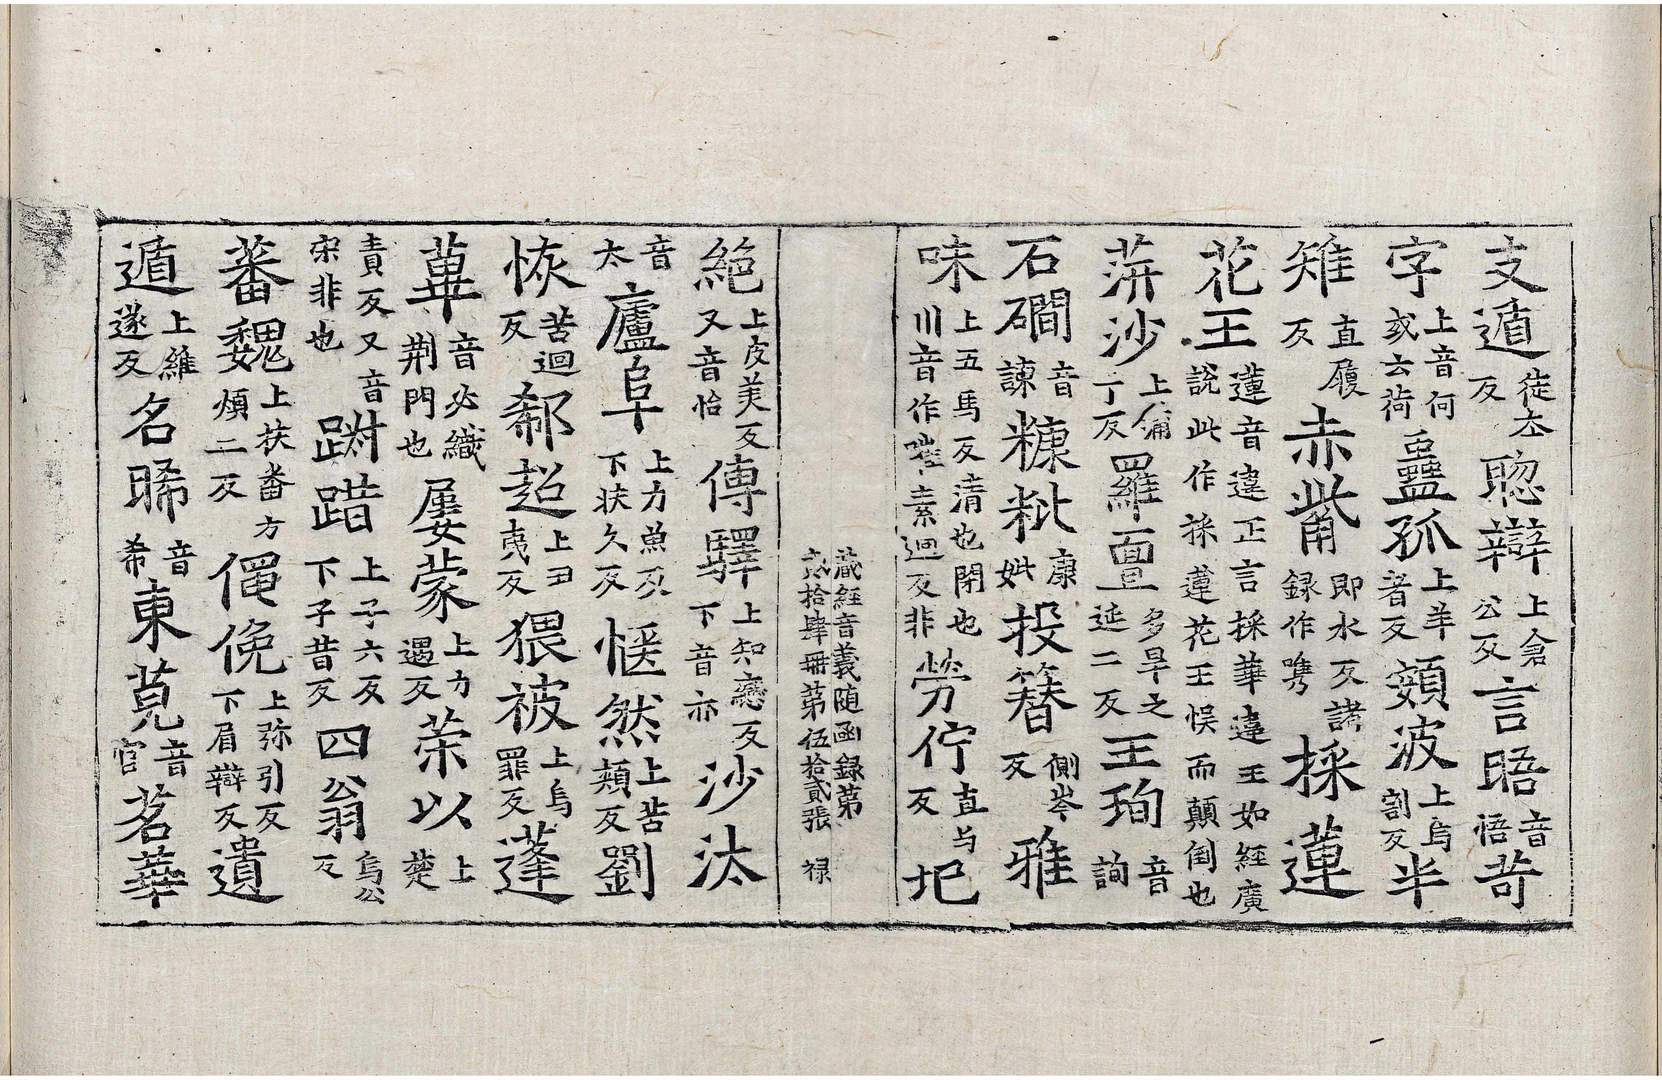 支遁徒夲反聦辯上倉公反言晤音悟苛
字上音何或云荷蠱孤上羊者反頞波上烏割反半
雉直履反赤觜即水反諸録作㕙採蓮
花王蓮音違正言採華違王如經廣說此作採蓮花王悮而顛倒也
蓱沙上蒲丁反羅亶多旱之延二反王珣音詢
石磵音諫糠粃康妣投簪側岑反雅
味上五馬反清也閑也川音作嗺素迴反非勞佇直与反圯
藏經音義随函録第
貳拾肆冊第伍拾貳張 禄
絕上皮美反又音怡傳驛上知戀反下音亦沙汰
音太廬阜上力魚反下扶久反愜然上苦頰反劉
恢苦迴反郗超上丑夷反猥被上烏罪反蓬
蓽音必織荆門也屢蒙上力遇反荣以上楚
責反又音宋非也踧踖上子六反下子昔反四翁烏公反
蕃魏上扶番方煩二反僶俛上弥引反下眉辯反遺
遁上維遂反名晞音希東莧音官茗華